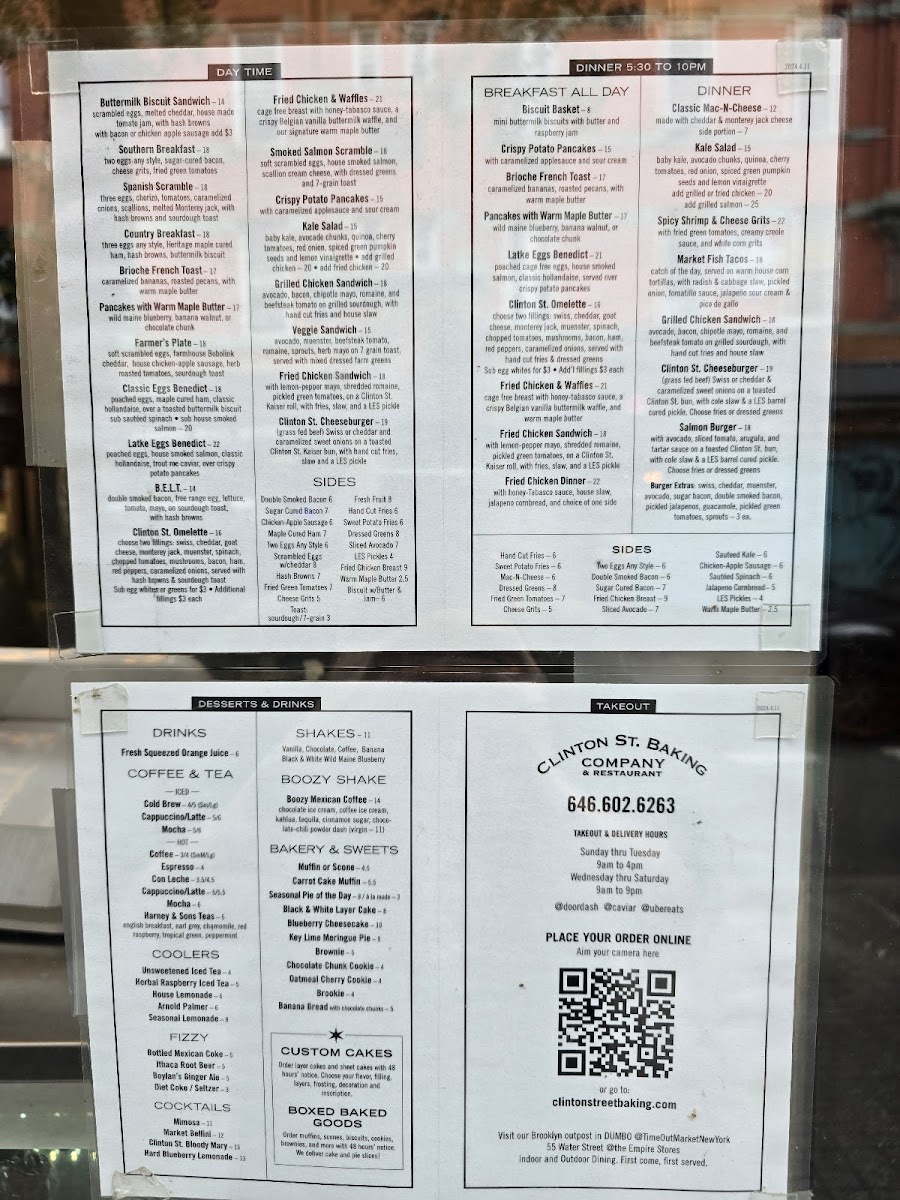 DAY TIME
Buttermilk Biscuit Sandwich – 14
scrambled eggs, melted cheddar, house made
tomato jam, with hash browns
with bacon or chicken apple sausage add $3
Southern Breakfast – 18
two eggs any style, sugar-cured bacon,
cheese grits, fried green tomatoes
Spanish Scramble – 18
three eggs, chorizo, tomatoes, caramelized
onions, scallions, melted Monterey jack, with
hash browns and sourdough toast
Country Breakfast – 18
three eggs any style, Heritage maple cured
ham, hash browns, buttermilk biscuit
Brioche French Toast – 17
caramelized bananas, roasted pecans, with
warm maple butter
Pancakes with Warm Maple Butter – 17
wild maine blueberry, banana walnut, or
chocolate chunk
Farmer's Plate – 18
soft scrambled eggs, farmhouse Bobolink
cheddar, house chicken-apple sausage, herb
roasted tomatoes, sourdough toast
Classic Eggs Benedict – 18
poached eggs, maple cured ham, classic
hollandaise, over a toasted buttermilk biscuit
sub sauteed spinach • sub house smoked
salmon – 20
Latke Eggs Benedict – 22
poached eggs, house smoked salmon, classic
hollandaise, trout roe caviar, over crispy
potato pancakes
B.E.L.T. – 14
double smoked bacon, free range egg, lettuce,
tomato, mayo, on sourdough toast,
with hash browns
Clinton St. Omelette – 16
choose two fillings: swiss, cheddar, goat
cheese, monterey jack, muenster, spinach,
chopped tomatoes, mushrooms, bacon, ham,
red peppers, caramelized onions, served with
hash browns & sourdough toast
Sub egg whites or greens for $3 • Additional
fillings $3 each
Fried Chicken & Waffles – 21
cage free breast with honey-tabasco sauce, a
crispy Belgian vanilla buttermilk waffle, and
our signature warm maple butter
Smoked Salmon Scramble – 18
soft scrambled eggs, house smoked salmon,
scallion cream cheese, with dressed greens
and 7-grain toast
Crispy Potato Pancakes – 15
with caramelized applesauce and sour cream
Kale Salad – 15
baby kale, avocado chunks, quinoa, cherry
tomatoes, red onion, spiced green pumpkin
seeds and lemon vinaigrette • add grilled
chicken – 20 • add fried chicken – 20
Grilled Chicken Sandwich – 18
avocado, bacon, chipotle mayo, romaine, and
beefsteak tomato on grilled sourdough, with
hand cut fries and house slaw
Veggie Sandwich – 15
avocado, muenster, beefsteak tomato,
romaine, sprouts, herb mayo on 7 grain toast,
served with mixed dressed farm greens
Fried Chicken Sandwich – 18
with lemon-pepper mayo, shredded romaine,
pickled green tomatoes, on a Clinton St.
Kaiser roll, with fries, slaw, and a LES pickle
Clinton St. Cheeseburger – 19
(grass fed beef) Swiss or cheddar and
caramelized sweet onions on a toasted
Clinton St. Kaiser bun, with hand cut fries,
slaw and a LES pickle
SIDES
Double Smoked Bacon 6
Sugar Cured Bacon 7
Chicken-Apple Sausage 6
Maple Cured Ham 7
Two Eggs Any Style 6
Scrambled Eggs
w/cheddar 8
Hash Browns 7
Fried Green Tomatoes 7
Cheese Grits 5
Toast:
sourdough/7-grain 3
Fresh Fruit 8
Hand Cut Fries 6
Sweet Potato Fries 6
Dressed Greens 8
Sliced Avocado 7
LES Pickles 4
Fried Chicken Breast 9
Warm Maple Butter 2.5
Biscuit w/Butter &
Jam – 6
DINNER 5:30 TO 10PM
2024.4.11
BREAKFAST ALL DAY
Biscuit Basket – 8
mini buttermilk biscuits with butter and
raspberry jam
Crispy Potato Pancakes – 15
with caramelized applesauce and sour cream
Brioche French Toast – 17
caramelized bananas, roasted pecans, with
warm maple butter
Pancakes with Warm Maple Butter – 17
wild maine blueberry, banana walnut, or
chocolate chunk
Latke Eggs Benedict – 21
poached cage free eggs, house smoked
salmon, classic hollandaise, served over
crispy potato pancakes
Clinton St. Omelette – 16
choose two fillings: swiss, cheddar, goat
cheese, monterey jack, muenster, spinach,
chopped tomatoes, mushrooms, bacon, ham,
red peppers, caramelized onions, served with
hand cut fries & dressed greens
Sub egg whites for $3 • Add'l fillings $3 each
Fried Chicken & Waffles – 21
cage free breast with honey-tabasco sauce, a
crispy Belgian vanilla buttermilk waffle, and
warm maple butter
Fried Chicken Sandwich – 18
with lemon-pepper mayo, shredded romaine,
pickled green tomatoes, on a Clinton St.
Kaiser roll, with fries, slaw, and a LES pickle
Fried Chicken Dinner – 22
with honey-Tabasco sauce, house slaw,
jalapeno cornbread, and choice of one side
DINNER
Classic Mac-N-Cheese – 12
made with cheddar & monterey jack cheese
side portion – 7
Kale Salad – 15
baby kale, avocado chunks, quinoa, cherry
tomatoes, red onion, spiced green pumpkin
seeds and lemon vinaigrette
add grilled or fried chicken – 20
add grilled salmon – 25
Spicy Shrimp & Cheese Grits – 22
with fried green tomatoes, creamy creole
sauce, and white corn grits
Market Fish Tacos – 18
catch of the day, served on warm house corn
tortillas, with radish & cabbage slaw, pickled
onion, tomatillo sauce, jalapeno sour cream &
pico de gallo
Grilled Chicken Sandwich – 18
avocado, bacon, chipotle mayo, romaine, and
beefsteak tomato on grilled sourdough, with
hand cut fries and house slaw
Clinton St. Cheeseburger – 19
(grass fed beef) Swiss or cheddar &
caramelized sweet onions on a toasted
Clinton St. bun, with cole slaw & a LES barrel
cured pickle. Choose fries or dressed greens
Salmon Burger – 18
with avocado, sliced tomato, arugula, and
tartar sauce on a toasted Clinton St. bun,
with cole slaw & a LES barrel cured pickle.
Choose fries or dressed greens
Burger Extras: swiss, cheddar, muenster,
avocado, sugar bacon, double smoked bacon,
pickled jalapenos, guacamole, pickled green
tomatoes, sprouts – 3 ea.
SIDES
Hand Cut Fries – 6
Sweet Potato Fries – 6
Mac-N-Cheese – 6
Dressed Greens – 8
Fried Green Tomatoes – 7
Cheese Grits – 5
Two Eggs Any Style – 6
Double Smoked Bacon – 6
Sugar Cured Bacon – 7
Fried Chicken Breast – 9
Sliced Avocado – 7
Sauteed Kale – 6
Chicken-Apple Sausage – 6
Sautéed Spinach – 6
Jalapeno Cornbread – 5
LES Pickles – 4
Warm Maple Butter – 2.5
DESSERTS & DRINKS
DRINKS
Fresh Squeezed Orange Juice – 6
COFFEE & TEA
— ICED —
Cold Brew – 4/5 (Sm/Lg)
Cappuccino/Latte – 5/6
Mocha – 5/6
— HOT —
Coffee – 3/4 (Sm/Lg)
Espresso – 4
Con Leche – 3.5/4.5
Cappuccino/Latte – 5/5.5
Mocha – 6
Harney & Sons Teas – 6
english breakfast, earl grey, chamomile, red
raspberry, tropical green, peppermint
COOLERS
Unsweetened Iced Tea – 4
Herbal Raspberry Iced Tea – 5
House Lemonade – 6
Arnold Palmer – 6
Seasonal Lemonade – 8
FIZZY
Bottled Mexican Coke – 5
Ithaca Root Beer – 5
Boylan's Ginger Ale – 5
Diet Coke / Seltzer – 3
COCKTAILS
Mimosa – 11
Market Bellini – 12
Clinton St. Bloody Mary – 13
Hard Blueberry Lemonade – 13
SHAKES – 11
Vanilla, Chocolate, Coffee, Banana
Black & White Wild Maine Blueberry
BOOZY SHAKE
Boozy Mexican Coffee – 14
chocolate ice cream, coffee ice cream,
kahlua, tequila, cinnamon sugar, choco-
late-chili powder dash (virgin – 11)
BAKERY & SWEETS
Muffin or Scone – 4.5
Carrot Cake Muffin – 5.5
Seasonal Pie of the Day – 8 / a la mode – 3
Black & White Layer Cake – 8
Blueberry Cheesecake – 10
Key Lime Meringue Pie – 8
Brownie – 5
Chocolate Chunk Cookie – 4
Oatmeal Cherry Cookie – 4
Brookie – 4
Banana Bread with chocolate chunks – 5
CUSTOM CAKES
Order layer cakes and sheet cakes with 48
hours' notice. Choose your flavor, filling,
layers, frosting, decoration and
inscription.
BOXED BAKED
GOODS
Order muffins, scones, biscuits, cookies,
brownies, and more with 48 hours' notice.
We deliver cake and pie slices!
TAKEOUT
2024.4.11
CLINTON ST. BAKING
COMPANY
& RESTAURANT
646.602.6263
TAKEOUT & DELIVERY HOURS
Sunday thru Tuesday
9am to 4pm
Wednesday thru Saturday
9am to 9pm
@doordash @caviar @ubereats
PLACE YOUR ORDER ONLINE
Aim your camera here
or go to:
clintonstreetbaking.com
Visit our Brooklyn outpost in DUMBO @TimeOutMarketNewYork
55 Water Street @the Empire Stores
Indoor and Outdoor Dining. First come, first served.